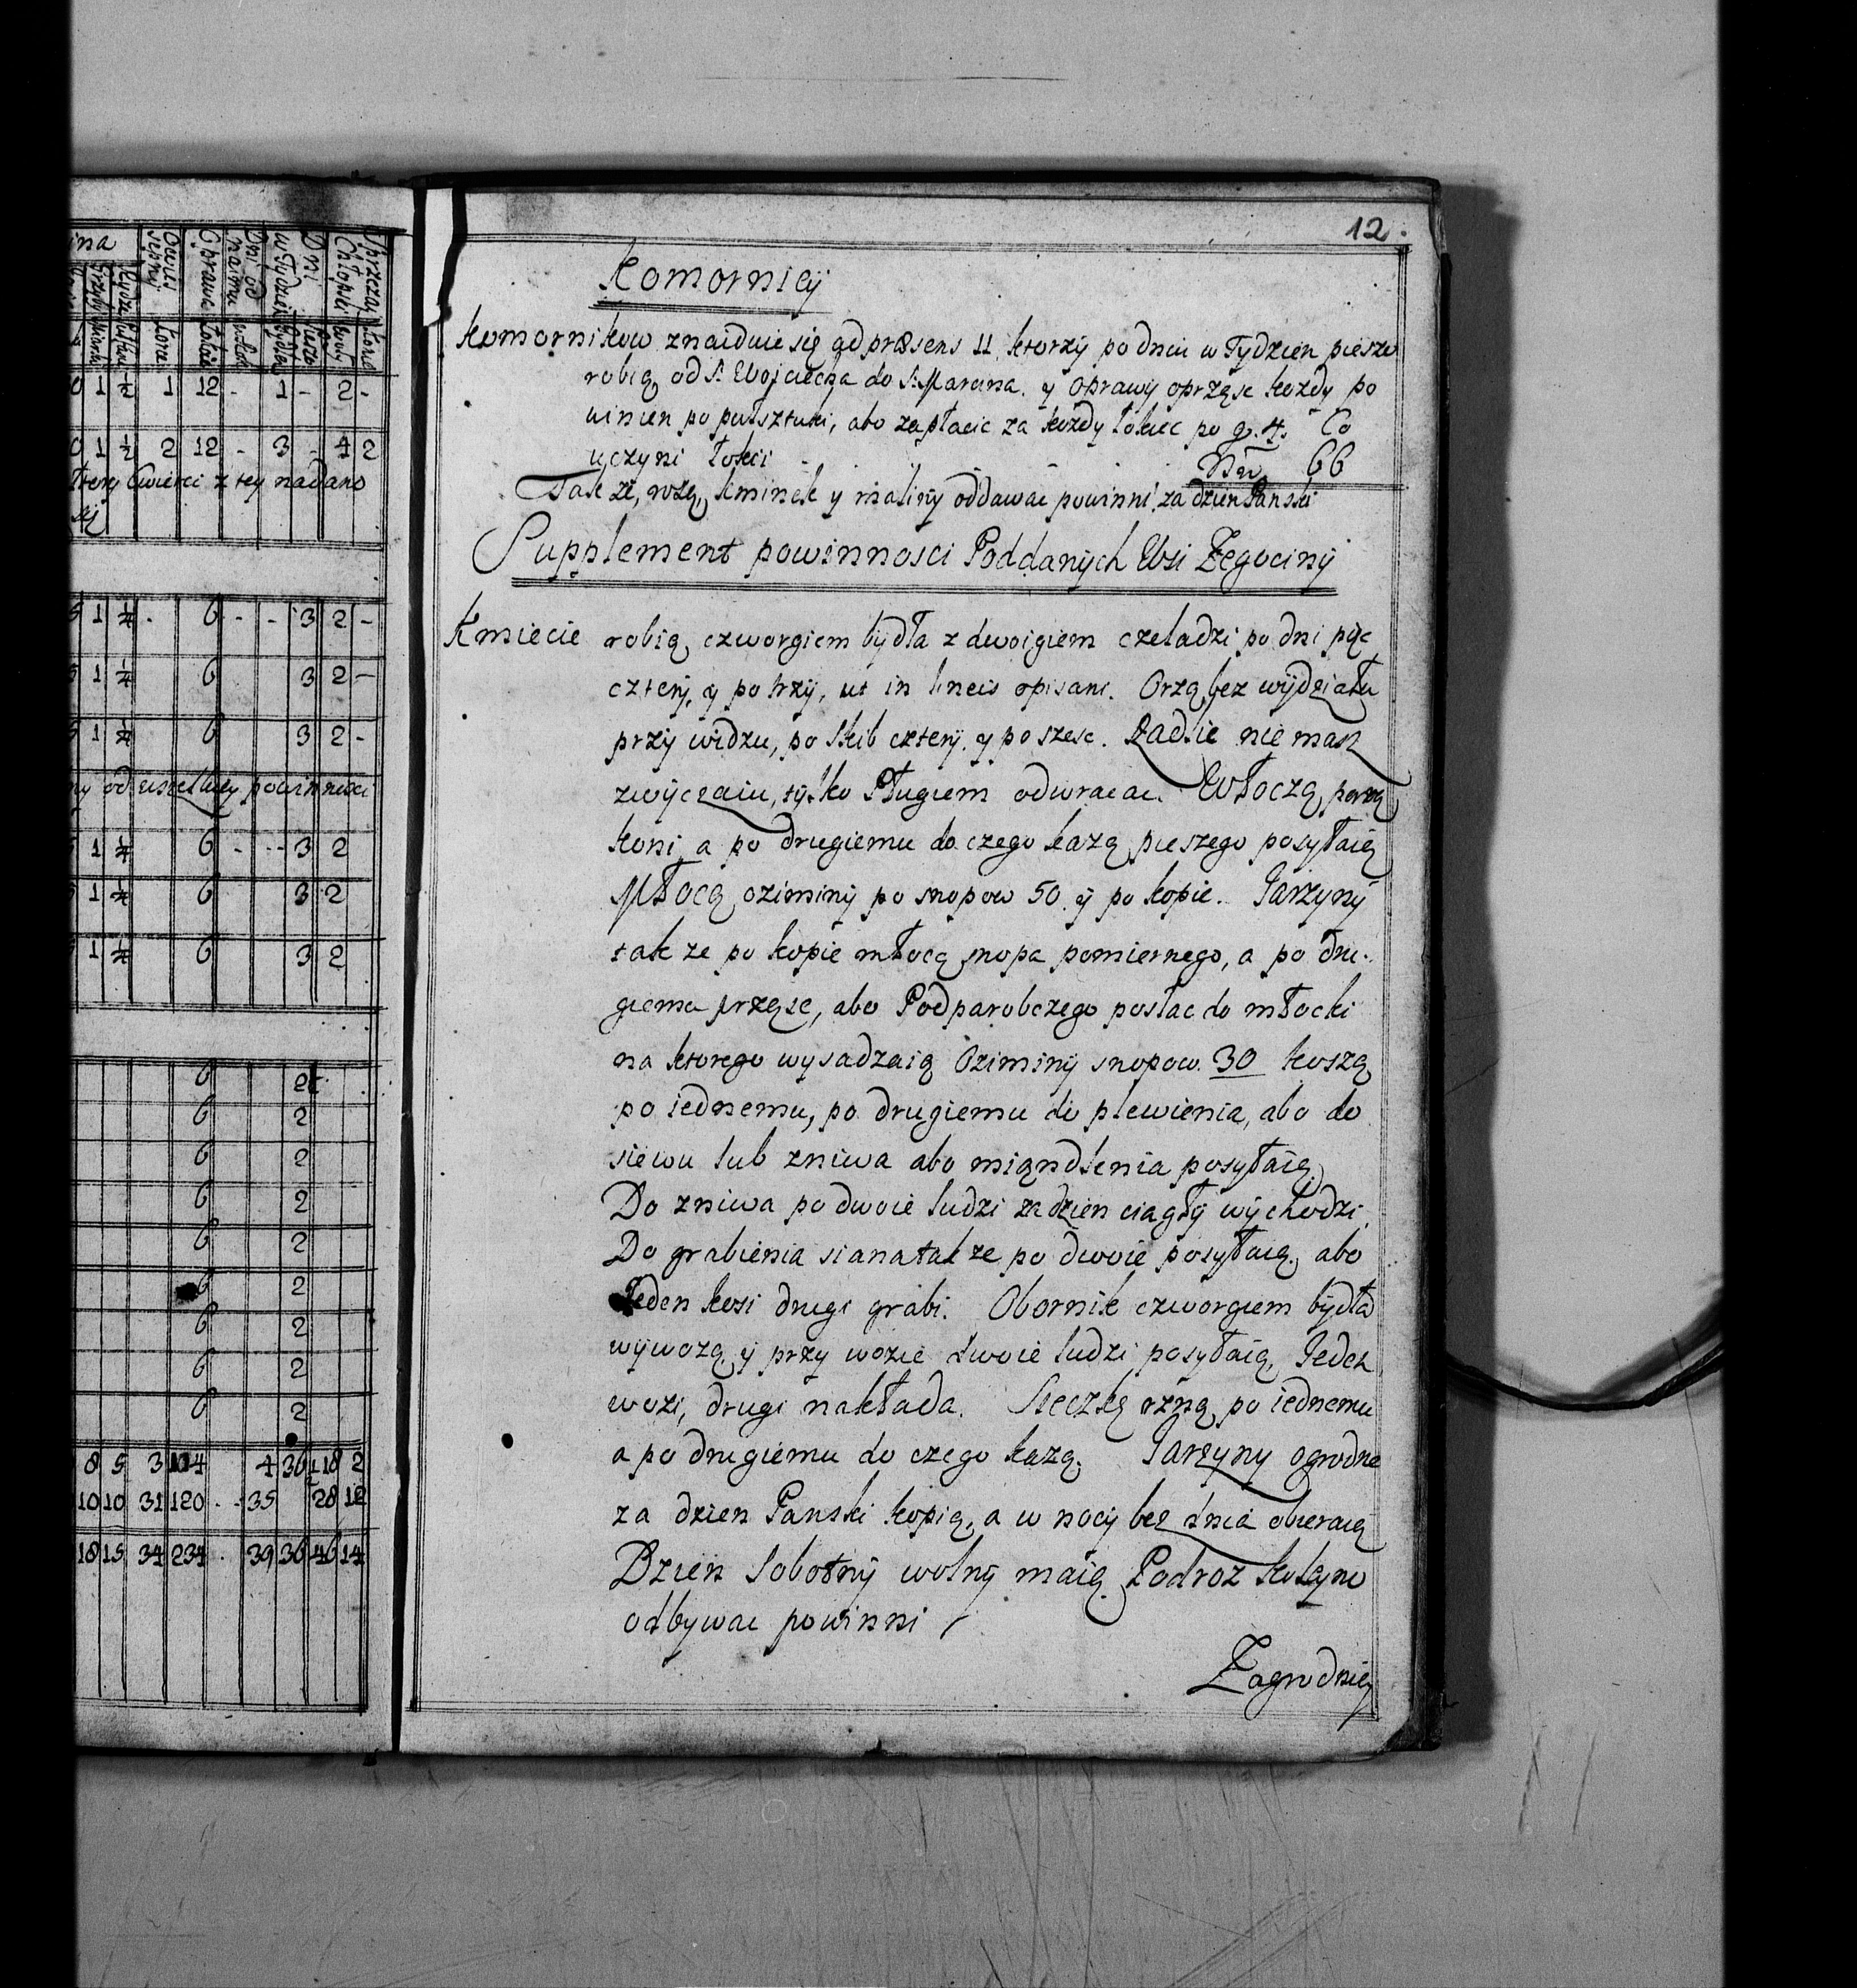 12.
Komornicÿ
Komornikow znaiduie się ad præsens 11, ktorzÿ po dniu w Tÿdzien pieszo
robią, od S. Woÿciecha do S. Marcina. y Oprawÿ oprząsc każdy po
winien po pułsztuki, abo zapłacic za każdy łokiec po g. 4. Co
uczyni łokci - 66
Tak że, rożą, kminek y malinÿ oddawac powinni, za dzien Panski
Supplement powinnosci Poddanÿch Wsi Żegocinÿ
Kmiecie robią, czworgiem bÿdła z dwoigiem czeladzi po dni pięc
czterÿ, y po trzÿ, ut in lineis opisani. Orzą bez wÿdziału
przÿ widzu, po skib czterÿ y po szesc. Radlic nie masz
zwÿczaiu, tÿlko Pługiem odwracac. Włoczą parą
koni a po drugiemu do czego każą pieszego posyłaią
Młocą oziminÿ po snopow 50. ÿ po kopie. Jarzynÿ
tak ze po kopie młocą snopa pomiernego, a po dru-
giemu prząsc, abo Podparobczego posłac do młocki
na ktorego wysadzaią Oziminÿ snopow. 30 Koszą
po iednemu, po drugiemu do plewienia, abo do
siewu lub zniwa abo miąndlenia posyłaią
Do zniwa po dwoie ludzi za dzien ciągłÿ wÿchodzi.
Do grabienia siana tak ze po dwoie posÿłaią, abo
Jeden kosi drugi grabi. Obornik czworgiem bÿdła
wÿwozą, ÿ przy wozie dwoie ludzi posÿłaią, Jeden
wozi, drugi nakłada. Sieczkę rzną po iednemu
a po drugiemu do czego każą. Jarzyny ogrodne
za dzien Panski kopią, a w nocÿ bez dnia obieraią
Dzien Sobotnÿ wolnÿ maią. Podroż koleÿno
odbywac powinni
Zagrodnicÿ
ina
Owies sepnÿ
Oprawa
Dni od naimu
Dni w Tydzien
Chłopiei
Sprzężaÿ
0 1 ½ 1 12 - 1 - 2 -
0 1 ½ 2 12 - 3 - 4 2
cztery cwierci z tey nadano
5 1 ¼ - 6 - - 3 2 -
5 1 ¼ 6 3 2 -
5 1 ¼ 6 3 2 -
ny od wszelkieÿ powinnosci
5 1 ¼ 6 - - 3 2
5 1 ¼ 6 3 2
5 1 ¼ 6 3 2
6 2
6 2
6 2
6 2
6 2
6 2
6 2
6 2
6 2
8 5 3 114 4 36 18 2
10 10 31 120 - 35 28 12
18 15 34 234 - 39 36 46 14